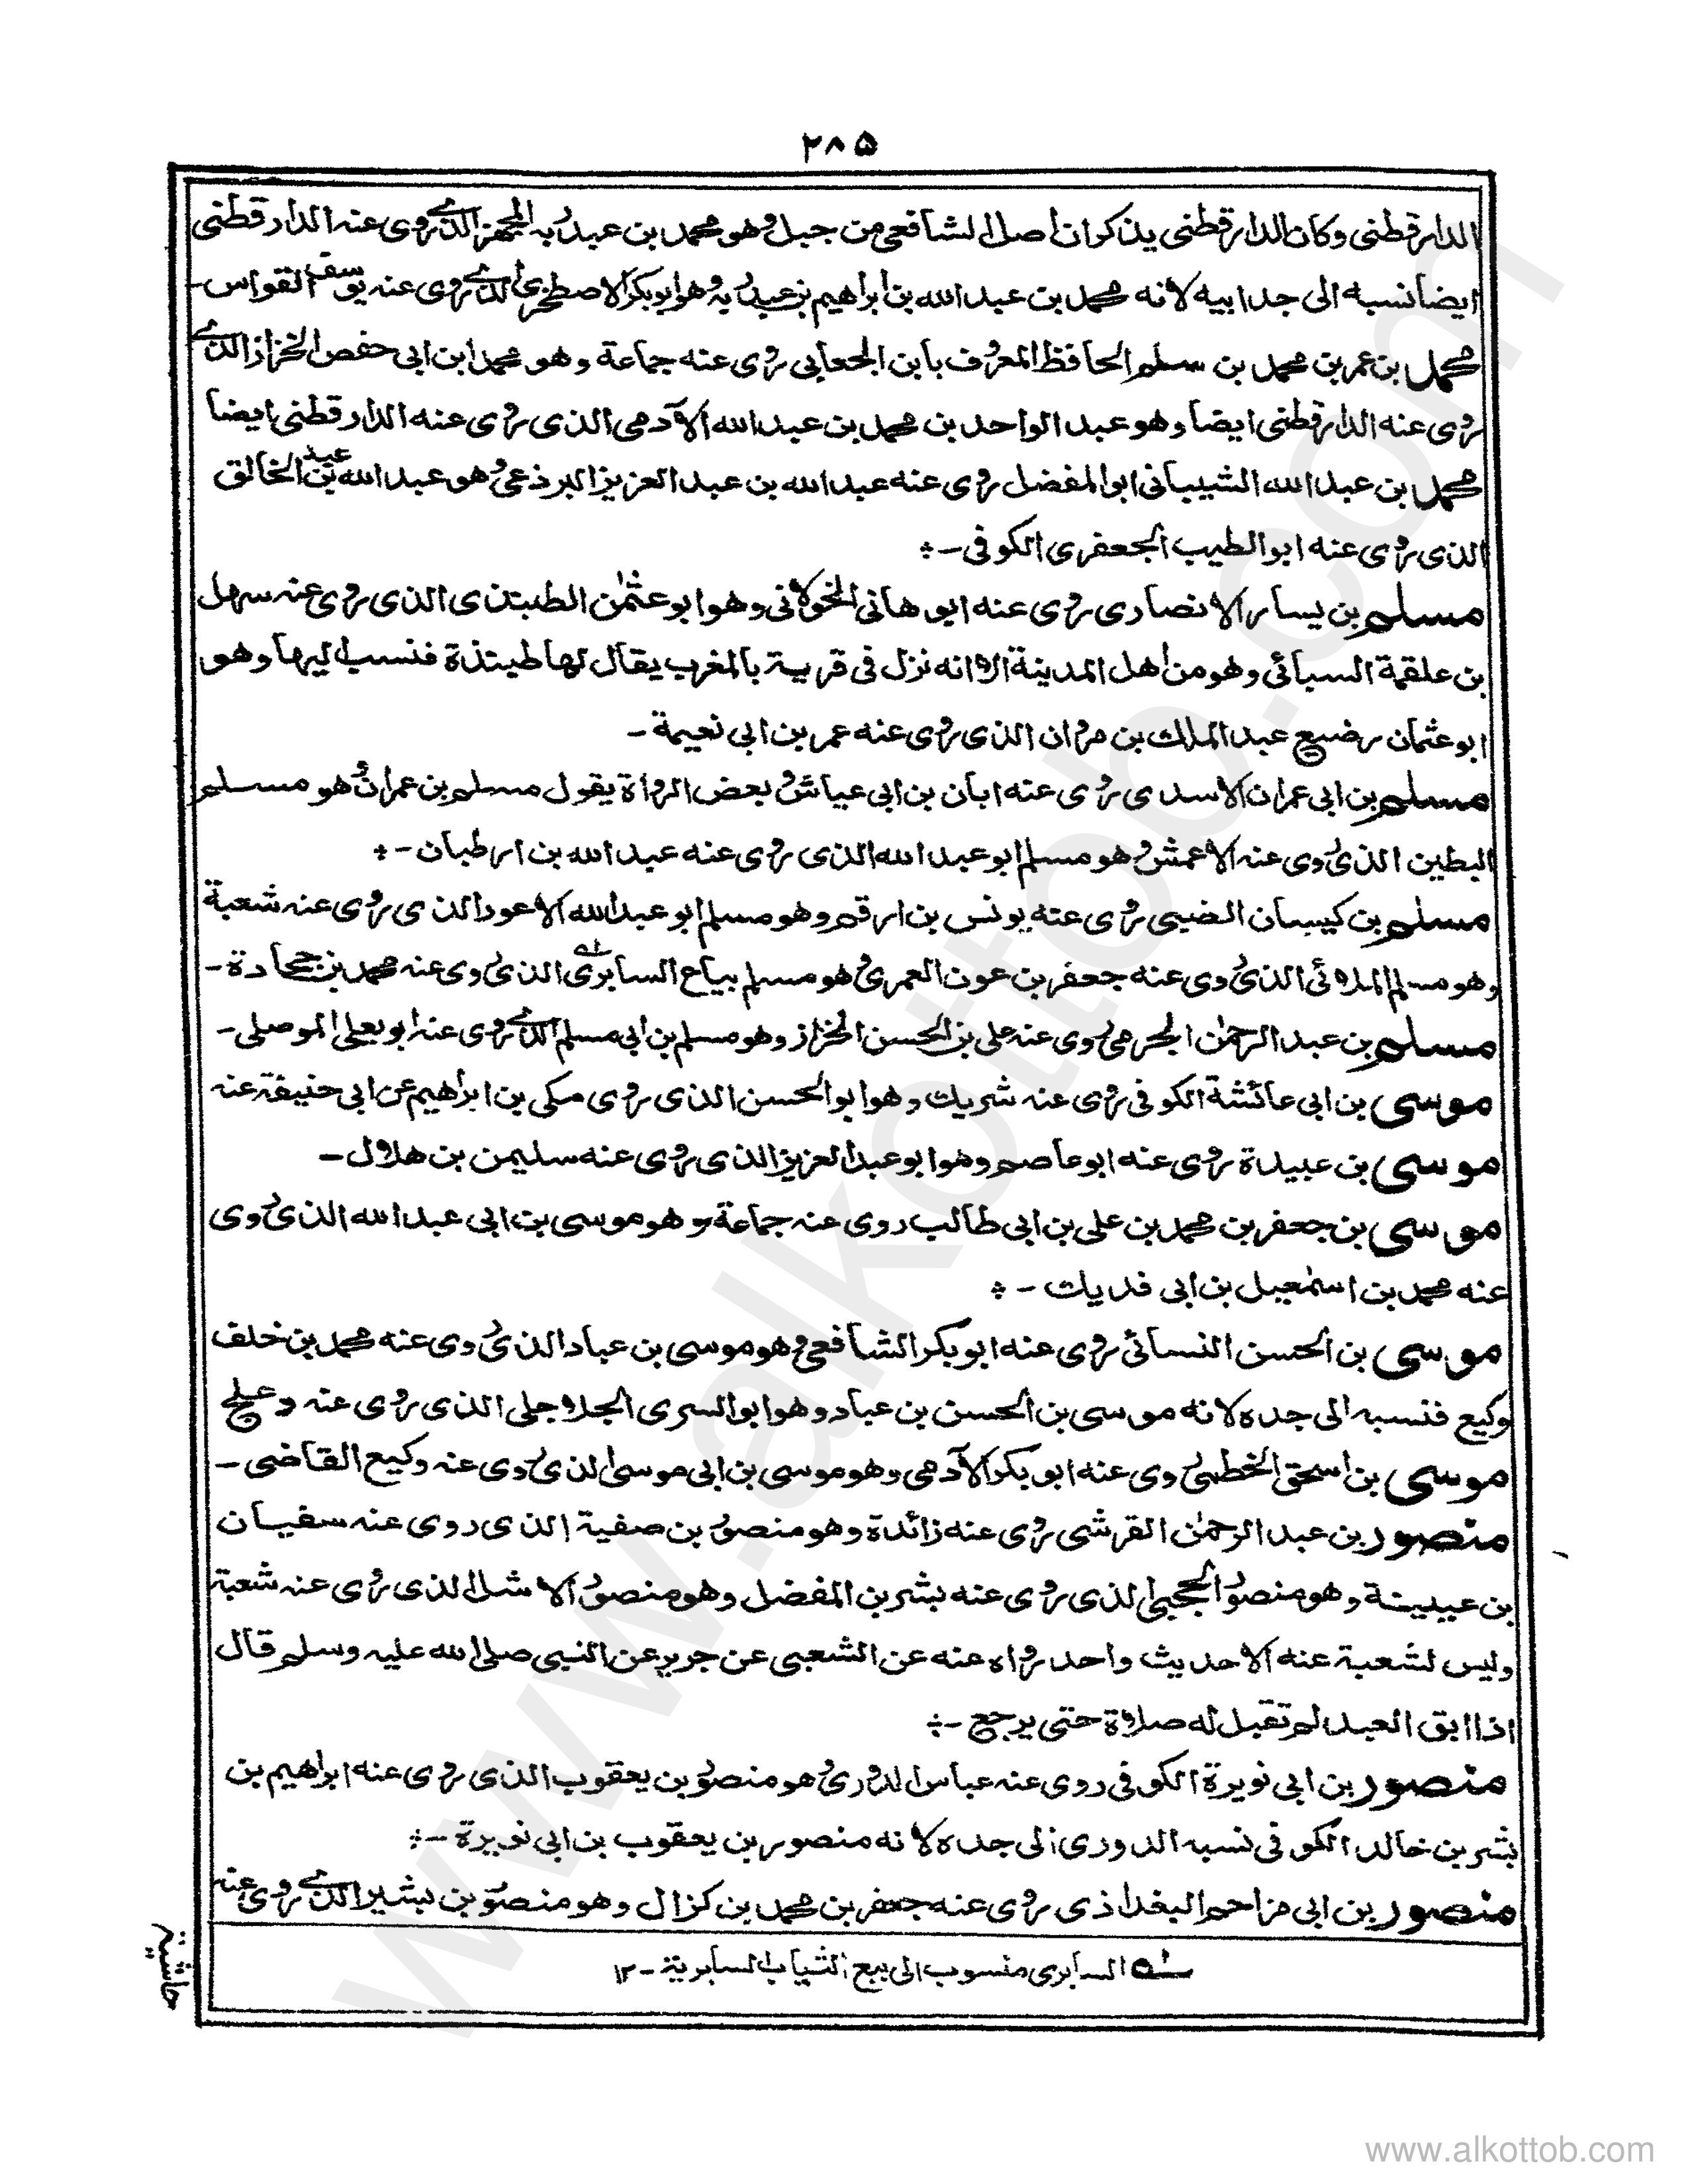 ٢٨٥
الدارقطنى وكان الدارقطنى يذكر ان اصل الشافعى من جبل وهو محمد بن عبدويه المجهز الذى روى عنه الدارقطنى
ايضا نسبه الى جد ابيه لانه محمد بن عبد الله بن ابراهيم بن عبدويه وهو ابو بكر الاصطخرى الذى روى عنه يوسف القواس-
محمد بن عمر بن محمد بن سلم الحافظ المعروف بابن الجعابى روى عنه جماعة وهو محمد ابن ابى حفص الخزاز الذى
روى عنه الدارقطنى ايضا وهو عبد الواحد بن محمد بن عبد الله الآدمى الذى روى عنه الدارقطنى ايضا
محمد بن عبد الله الشيبانى ابو المفضل روى عنه عبد الله بن عبد العزيز البرذعى وهو عبد الله بن عبد الخالق
الذى روى عنه ابو الطيب الجعفرى الكوفى -
مسلم بن يسار الانصارى روى عنه ابو هانى الخولانى وهو ابو عثمٰن الطبتذى الذى روى عنه سهل
بن علقمة السبائى وهو من اهل المدينة الا انه نزل فى قرية بالمغرب يقال لها طيتذة فنسب اليها وهو
ابو عثمان رضيع عبد الملك بن مروان الذى روى عنه عمر بن ابى نعيمة -
مسلم بن ابى عمران الاسدى روى عنه ابان بن ابى عياش وبعض الرواة يقول مسلم بن عمران وهو مسلم
البطين الذى روى عنه الاعمش وهو مسلم ابو عبد الله الذى روى عنه عبد الله بن ارطبان -
مسلم بن كيسان الضبى روى عنه يونس بن ارقم وهو مسلم ابو عبد الله الاعور الذى روى عنه شعبة
وهو مسلم الملائى الذى روى عنه جعفر بن عون العمرى وهو مسلم بياع السابرى الذى روى عنه محمد بن جحادة -
مسلم بن عبد الرحمٰن الجرمى روى عنه على بن الحسن الخزاز وهو مسلم بن ابى مسلم الذى روى عنه ابو يعلى الموصلى -
موسى بن ابى عائشة الكوفى روى عنه شريك وهو ابو الحسن الذى روى مكى بن ابراهيم عن ابى حنيفة عنه
موسى بن عبيدة روى عنه ابو عاصم وهو ابو عبد العزيز الذى روى عنه سليمن بن هلال -
موسى بن جعفر بن محمد بن على بن ابى طالب روى عنه جماعة وهو موسى بن ابى عبد الله الذى روى
عنه محمد بن اسمٰعيل بن ابى فديك -
موسى بن الحسن النسائى روى عنه ابو بكر الشافعى وهو موسى بن عباد الذى روى عنه محمد بن خلف
وكيع فنسبه الى جده لانه موسى بن الحسن بن عباد وهو ابو السرى الجلاجلى الذى روى عنه دعلج
موسى بن اسحق الخطمى روى عنه ابو بكر الآدمى وهو موسى بن ابى موسى الذى روى عنه وكيع القاضى -
منصور بن عبد الرحمٰن القرشى روى عنه زائدة وهو منصور بن صفية الذى روى عنه سفيان
بن عيينة وهو منصور الحجبى الذى روى عنه بشر بن المفضل وهو منصور الاشل الذى روى عنه شعبة
وليس لشعبة عنه الاحديث واحد رواه عنه عن الشعبى عن جرير عن النبى صلى الله عليه وسلم قال
اذا ابق العبد لم تقبل له صلاوة حتى يرجع -
منصور بن ابى نويرة الكوفى روى عنه عباس الدورى وهو منصور بن يعقوب الذى روى عنه ابراهيم بن
بشر بن خالد الكوفى نسبه الدورى الى جده لانه منصور بن يعقوب بن ابى نويرة -
منصور بن ابى مزاحم البغداذى روى عنه جعفر بن محمد بن كزال وهو منصور بن بشير الذى روى عنه
له السابرى منسوب الى بيع الثياب السابرية - ١٢
حاشية
www.alkottob.com
www.alkottob.com